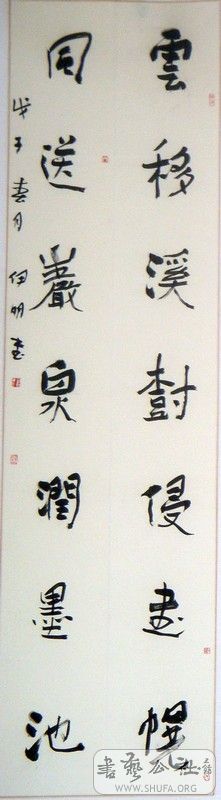 雲移溪樹侵書幌
風送巖泉潤墨池
戊子春月 明書
書藝公社
WWW.SHUFA.ORG